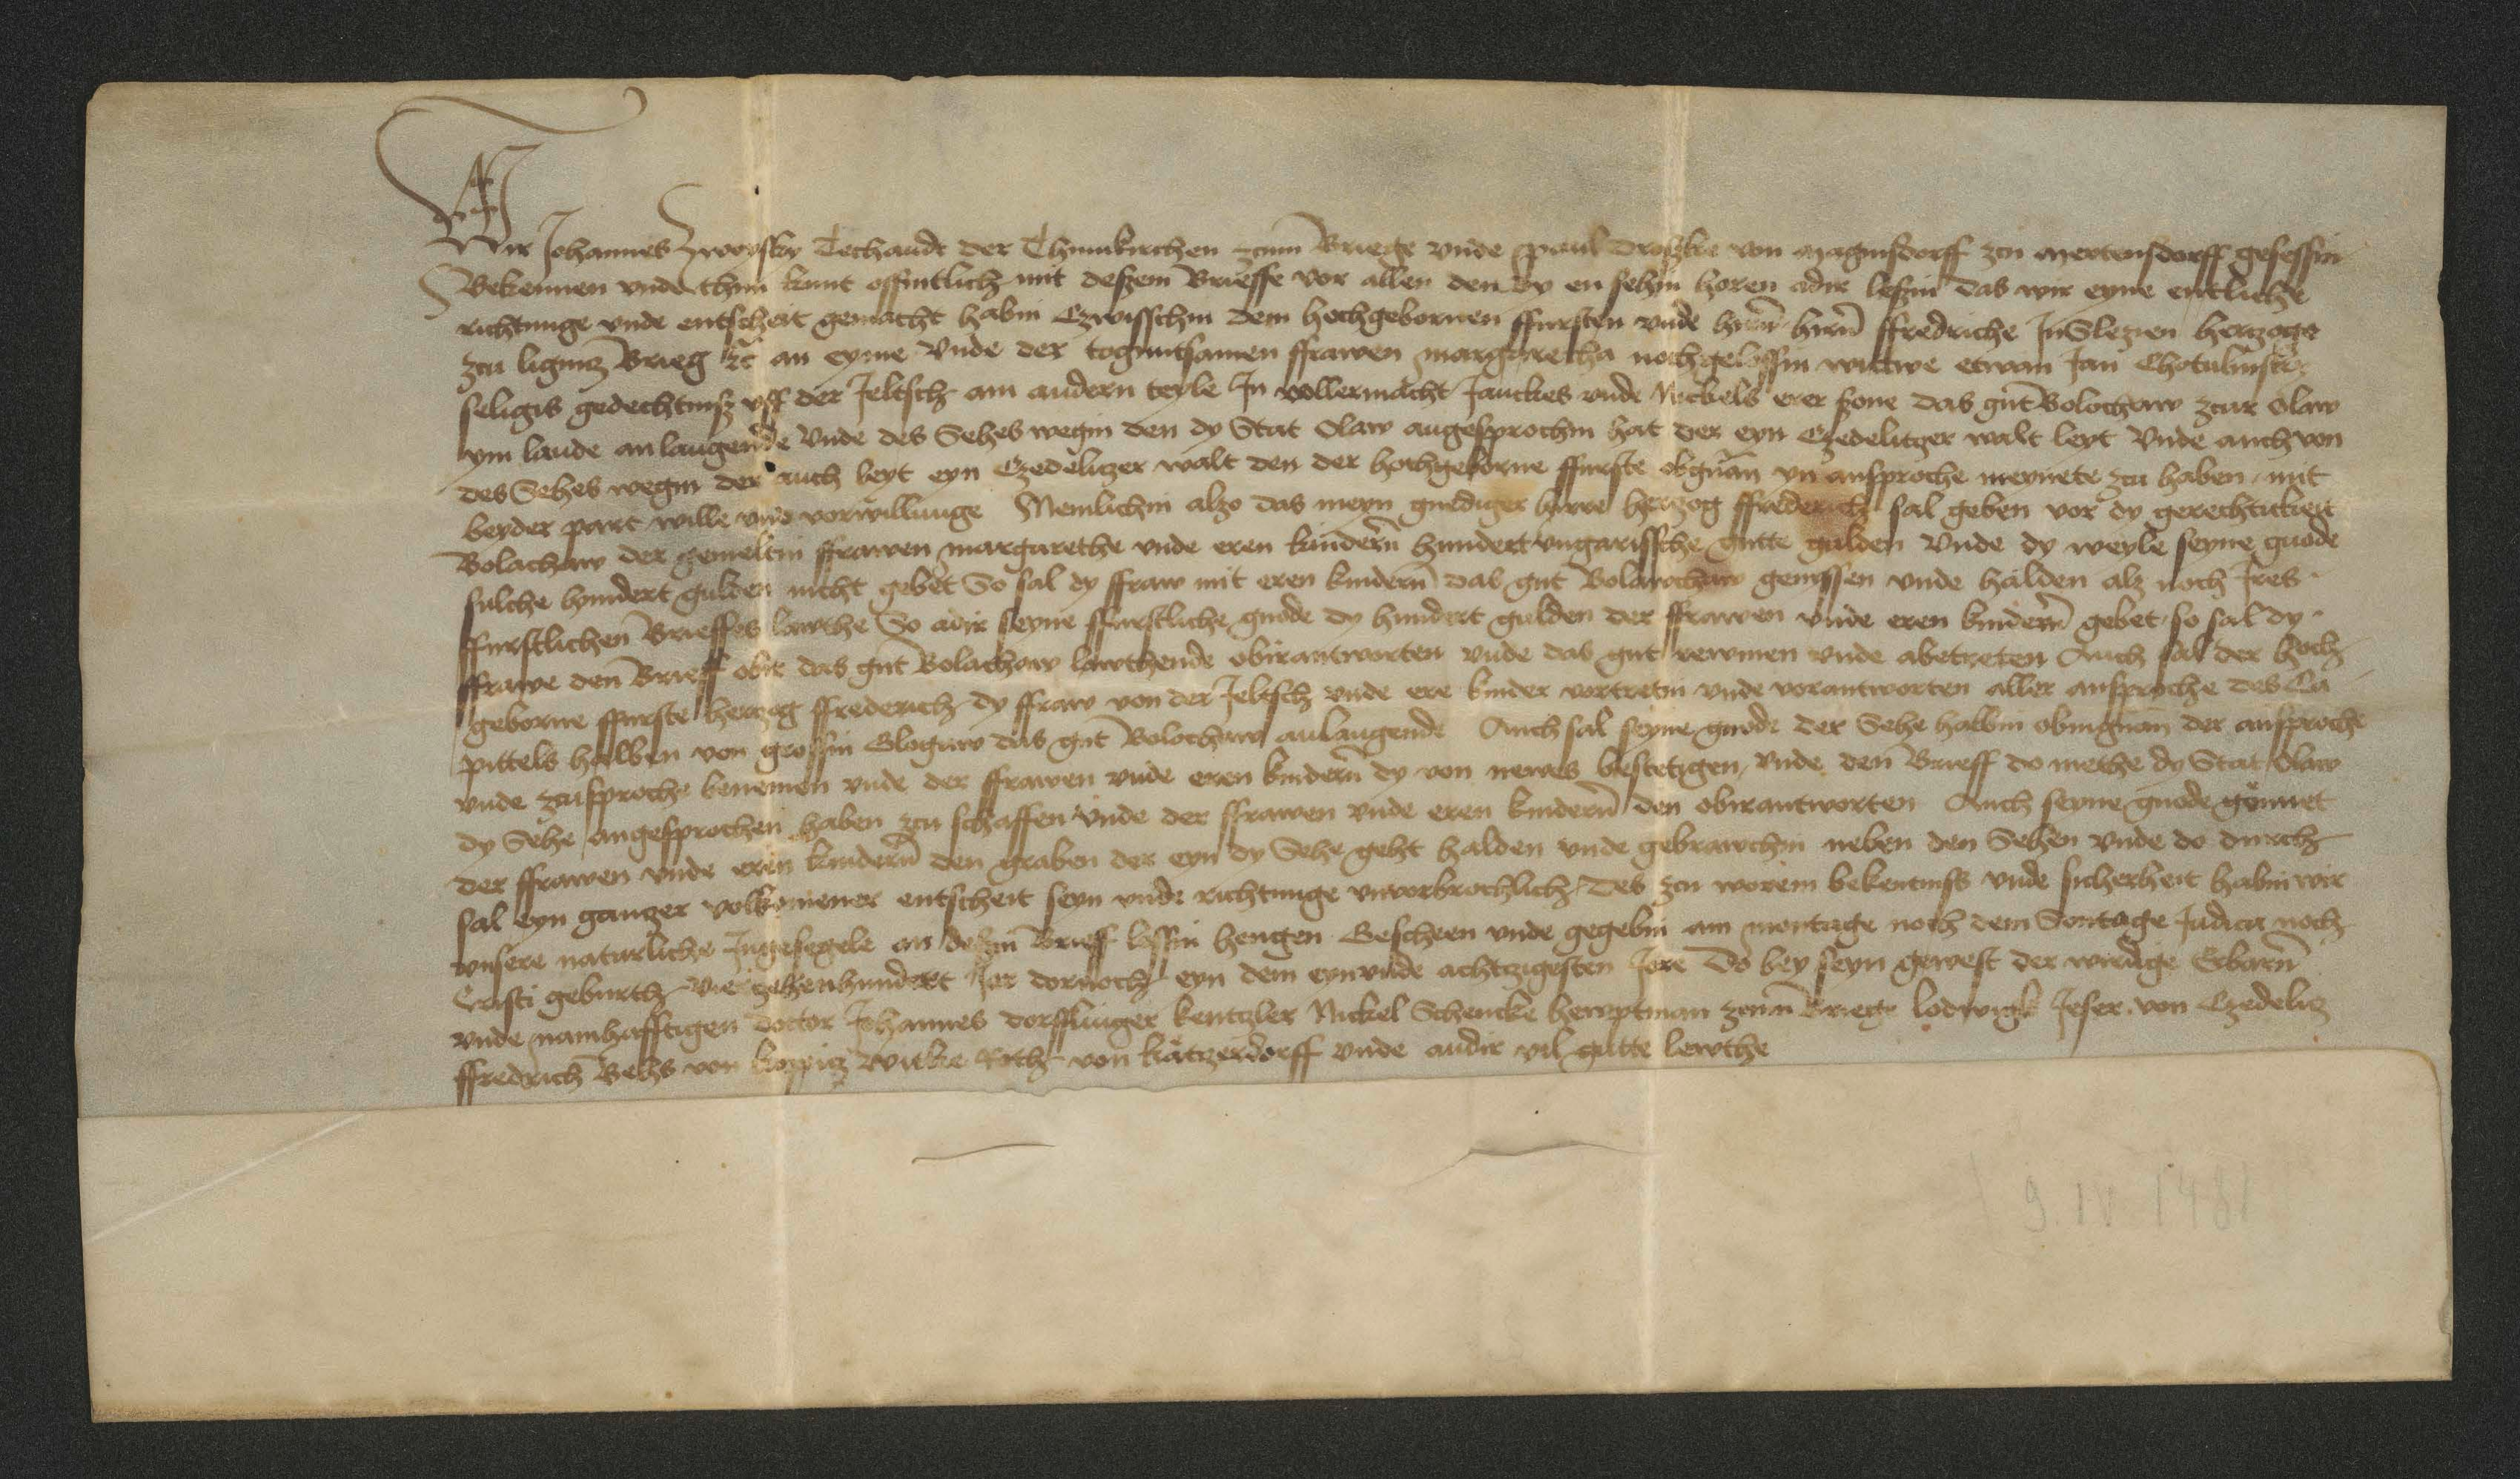 Wir Johannes Zwoysky Techandt der Thumkirchen zcum Briege vnde paul droszke von magnisdorff zcu mertensdorff gesessin
Bekennen vnde thun kunt offintlich mit deszem Brieffe vor allen den dy en sehin horen adir leszin das wir eyne entliche
richtunge vnde entscheit gemacht habin Czwisschin dem hochgebornen ffursten vnde hern hern ffredriche In Slezien hertzoge
zcu ligmitz Brieg ꝛc an eyme Vnde der togintsamen ffrawen margaretha nochgelossin wittwe etwan Jan Chotulinsky
seligis gedechtnisz vff der Jeltsch am andern teyle In vollermacht Janckes vnde Nickels erer szone das gut Bolochaw zcur Olaw
ym lande anlangende Vnde des Sehes wegin den dy Stat Olaw angesprochin hat der eyn Czedelitzer walt leyt Vnde auch von
des Sehes wegin der auch leyt eyn Czedelitzer walt den der hochgeborne ffurste obgnan yn ansproche meynete zcu haben mit
beyder part wille vnd vorwillunge Nemlichin alzo das meyn gnediger herre hertzog ffrederich sal geben vor dy gerechtickeit
Bolachaw der gemeltin ffrawen margarethe vnde eren kindern hundert vngarissche gutte gulden Vnde dy weyle seyne gnode
sulche hundert gulden nicht gebet So sal dy ffraw mit eren kindern das gut Bolawochaw genissen vnde halden alz noch Ires
ffurstlichen Brieffes lawthe So adir seyne ffurstliche gnode dy hundert gulden der ffrawen vnde eren kindern gebet so sal dy
ffrawe den Brieff obir das gut Bolachaw lawthende obirantworten vnde das gut rewmen vnde abetreten Auch sal der hoch
geborne ffurste hertzog ffrederich dy ffraw von der Jeltsch vnde ere kinder vortretin vnde vorantworten aller ansproche des Ca
pittels halben von grossin Glogaw das gut Bolochaw anlangende Auch sal seyne gnode der Sehe halbin obingnan der ansproche
vnde zcusproche benemen vnde der ffrawen vnde eren kindern dy von newes bestetigen Vnde den Brieff do methe dy Stat Olaw
dy Sehe angesprochen haben zcu schaffen Vnde der ffrawen vnde eren kindern den obirantworten Auch seyne gnode gönnet
der ffrawen vnde eren kindern den graben der eyn dy Sehe geht halden vnde gebrawchin neben den Sehen vnde do durch
sal eyn gantzer volkomener entscheit seyn vnde richtunge vnvorbrochlich Des zcu worem bekentniss vnde sicherheit habin wir
vnsere naturliche Ingesegele an deszin Brieff lossin hengen Gescheen vnde gegebin am montage noch dem Sontage Judica noch
Cristi geburth Vierzehenhundert Jar dornoch eyn dem eynvnde achtzigesten Jore Do bey seyn gewest der wirdige Erbarn
vnde namhafftigen doctor Johannes dorfflinger kentzler Nickel Schencke hewptman zcum Briege lodwigk Jeser von Czedelitz
ffredrich Behs von koppitz Witke Roth von katzerdorff vnde andir vil gutte lewthe
9. IV 1481